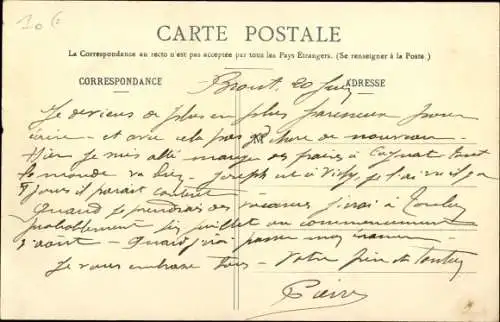 CARTE POSTALE
La Correspondance au recto n'est pas acceptée par tous les Pays Étrangers. (Se renseigner à la Poste.)
CORRESPONDANCE ADRESSE
Brout. 20
Je deviens de plus en plus paresseux pour
écrire - et avec cela pas M de nouveau -
Hier je suis allé manger des à tout
le monde va bien. Joseph est à Vichy je l'ai vu il y a
jours il paraît content -
Quand je prendrai des vacances j'irai à
probablement fin juillet ou commencement
d'août - Quand j'irai passer mon examen -
Je vous embrasse tous - Votre
Pierre